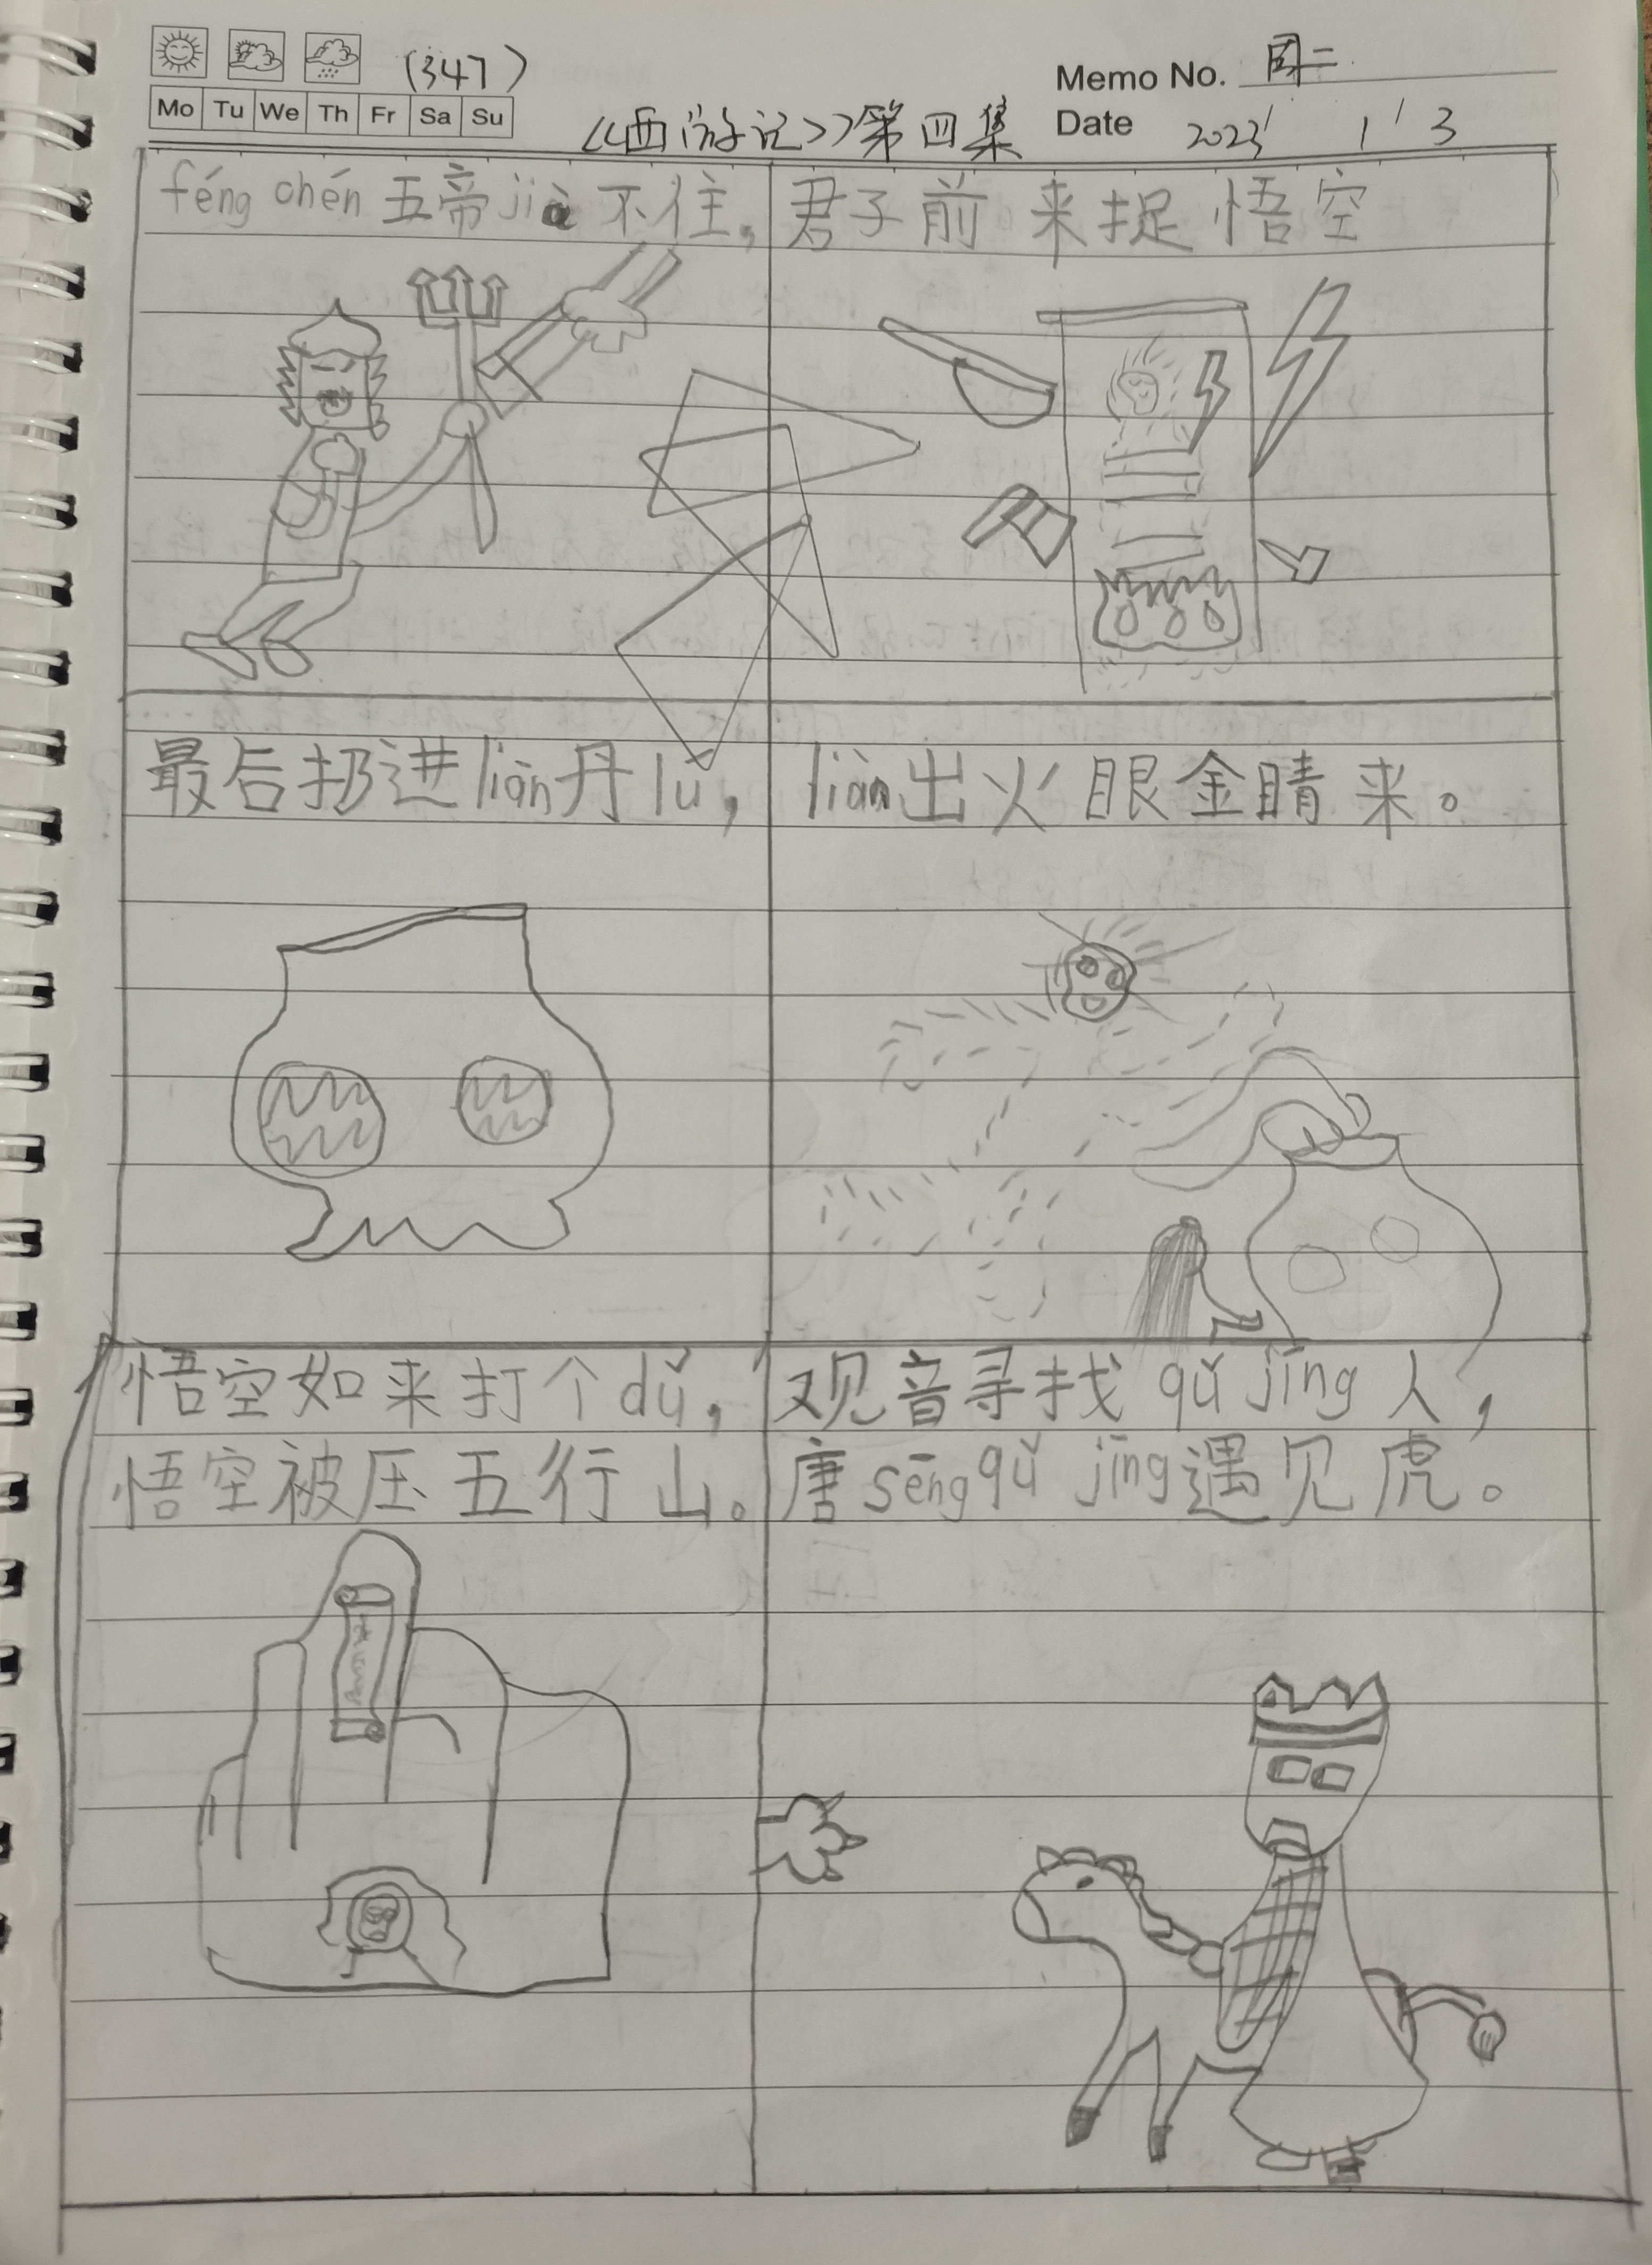 (347)
Memo No. 周二
Mo Tu We Th Fr Sa Su
《西游记》第四集
Date 2023' 1' 3
féng chén 五帝 jià 不住,
君子前来捉悟空
最后扔进 liàn 丹 lǔ,
liàn 出火眼金睛来。
悟空如来打个 dǔ,
悟空被压五行山。
观音寻找 qǔ jīng 人,
唐 sēng qǔ jīng 遇见虎。